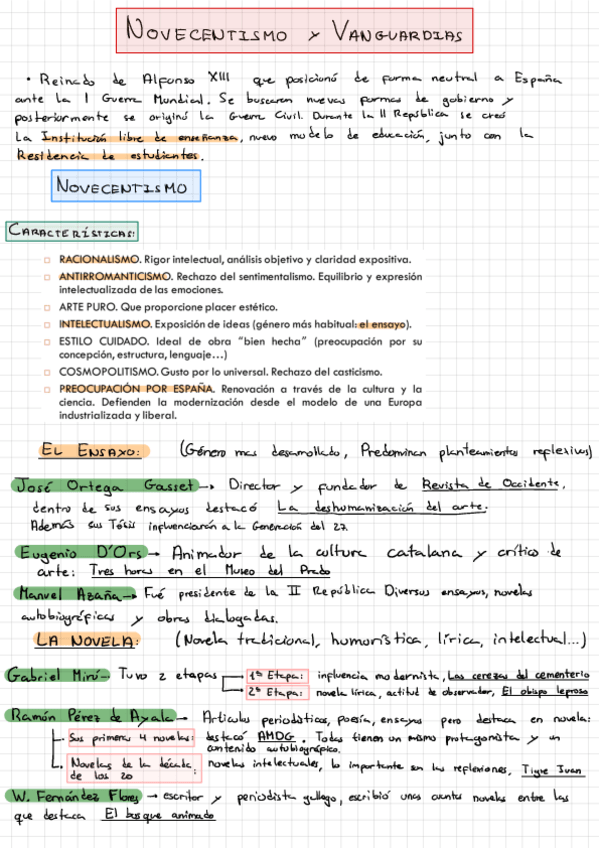 NOVECENTISMO Y VANGUARDIAS
• Reinado de Alfonso XIII que posicionó de forma neutral a España
ante la I Guerra Mundial. Se buscaron nuevas formas de gobierno y
posteriormente se originó la Guerra Civil. Durante la II República se creó
La Institución libre de enseñanza, nuevo modelo de educación, junto con la
Residencia de estudiantes.
NOVECENTISMO
CARACTERÍSTICAS:
RACIONALISMO. Rigor intelectual, análisis objetivo y claridad expositiva.
ANTIRROMANTICISMO. Rechazo del sentimentalismo. Equilibrio y expresión
intelectualizada de las emociones.
ARTE PURO. Que proporcione placer estético.
INTELECTUALISMO. Exposición de ideas (género más habitual: el ensayo).
ESTILO CUIDADO. Ideal de obra "bien hecha" (preocupación por su
concepción, estructura, lenguaje…)
COSMOPOLITISMO. Gusto por lo universal. Rechazo del casticismo.
PREOCUPACIÓN POR ESPAÑA. Renovación a través de la cultura y la
ciencia. Defienden la modernización desde el modelo de una Europa
industrializada y liberal.
EL ENSAYO: (Género mas desarrollado, Predominan planteamientos reflexivos)
José Ortega Gasset → Director y fundador de Revista de Occidente,
dentro de sus ensayos destacó La deshumanización del arte.
Además sus Tésis influenciarán a la Generación del 27.
Eugenio D'Ors → Animador de la cultura catalana y crítico de
arte: Tres horas en el Museo del Prado
Manuel Azaña → Fué presidente de la II República Diversos ensayos, novelas
autobiográficas y obras dialogadas.
LA NOVELA: (Novela tradicional, humorística, lírica, intelectual...)
Gabriel Miró - Tuvo 2 etapas → 1ª Etapa: influencia modernista, Las cerezas del cementerio
→ 2ª Etapa: novela lírica, actitud de observador, El obispo leproso
Ramón Pérez de Ayala → Artículos periodísticos, poesía, ensayos pero destaca en novela:
Sus primeras 4 novelas: destacó AMDG. Todas tienen un mismo protagonista y un
contenido autobiográfico.
Novelas de la década de los 20: novelas intelectuales, lo importante son las reflexiones, Tigre Juan
W. Fernández Flores → escritor y periodista gallego, escribió unas cuantas novelas entre las
que destaca El bosque animado